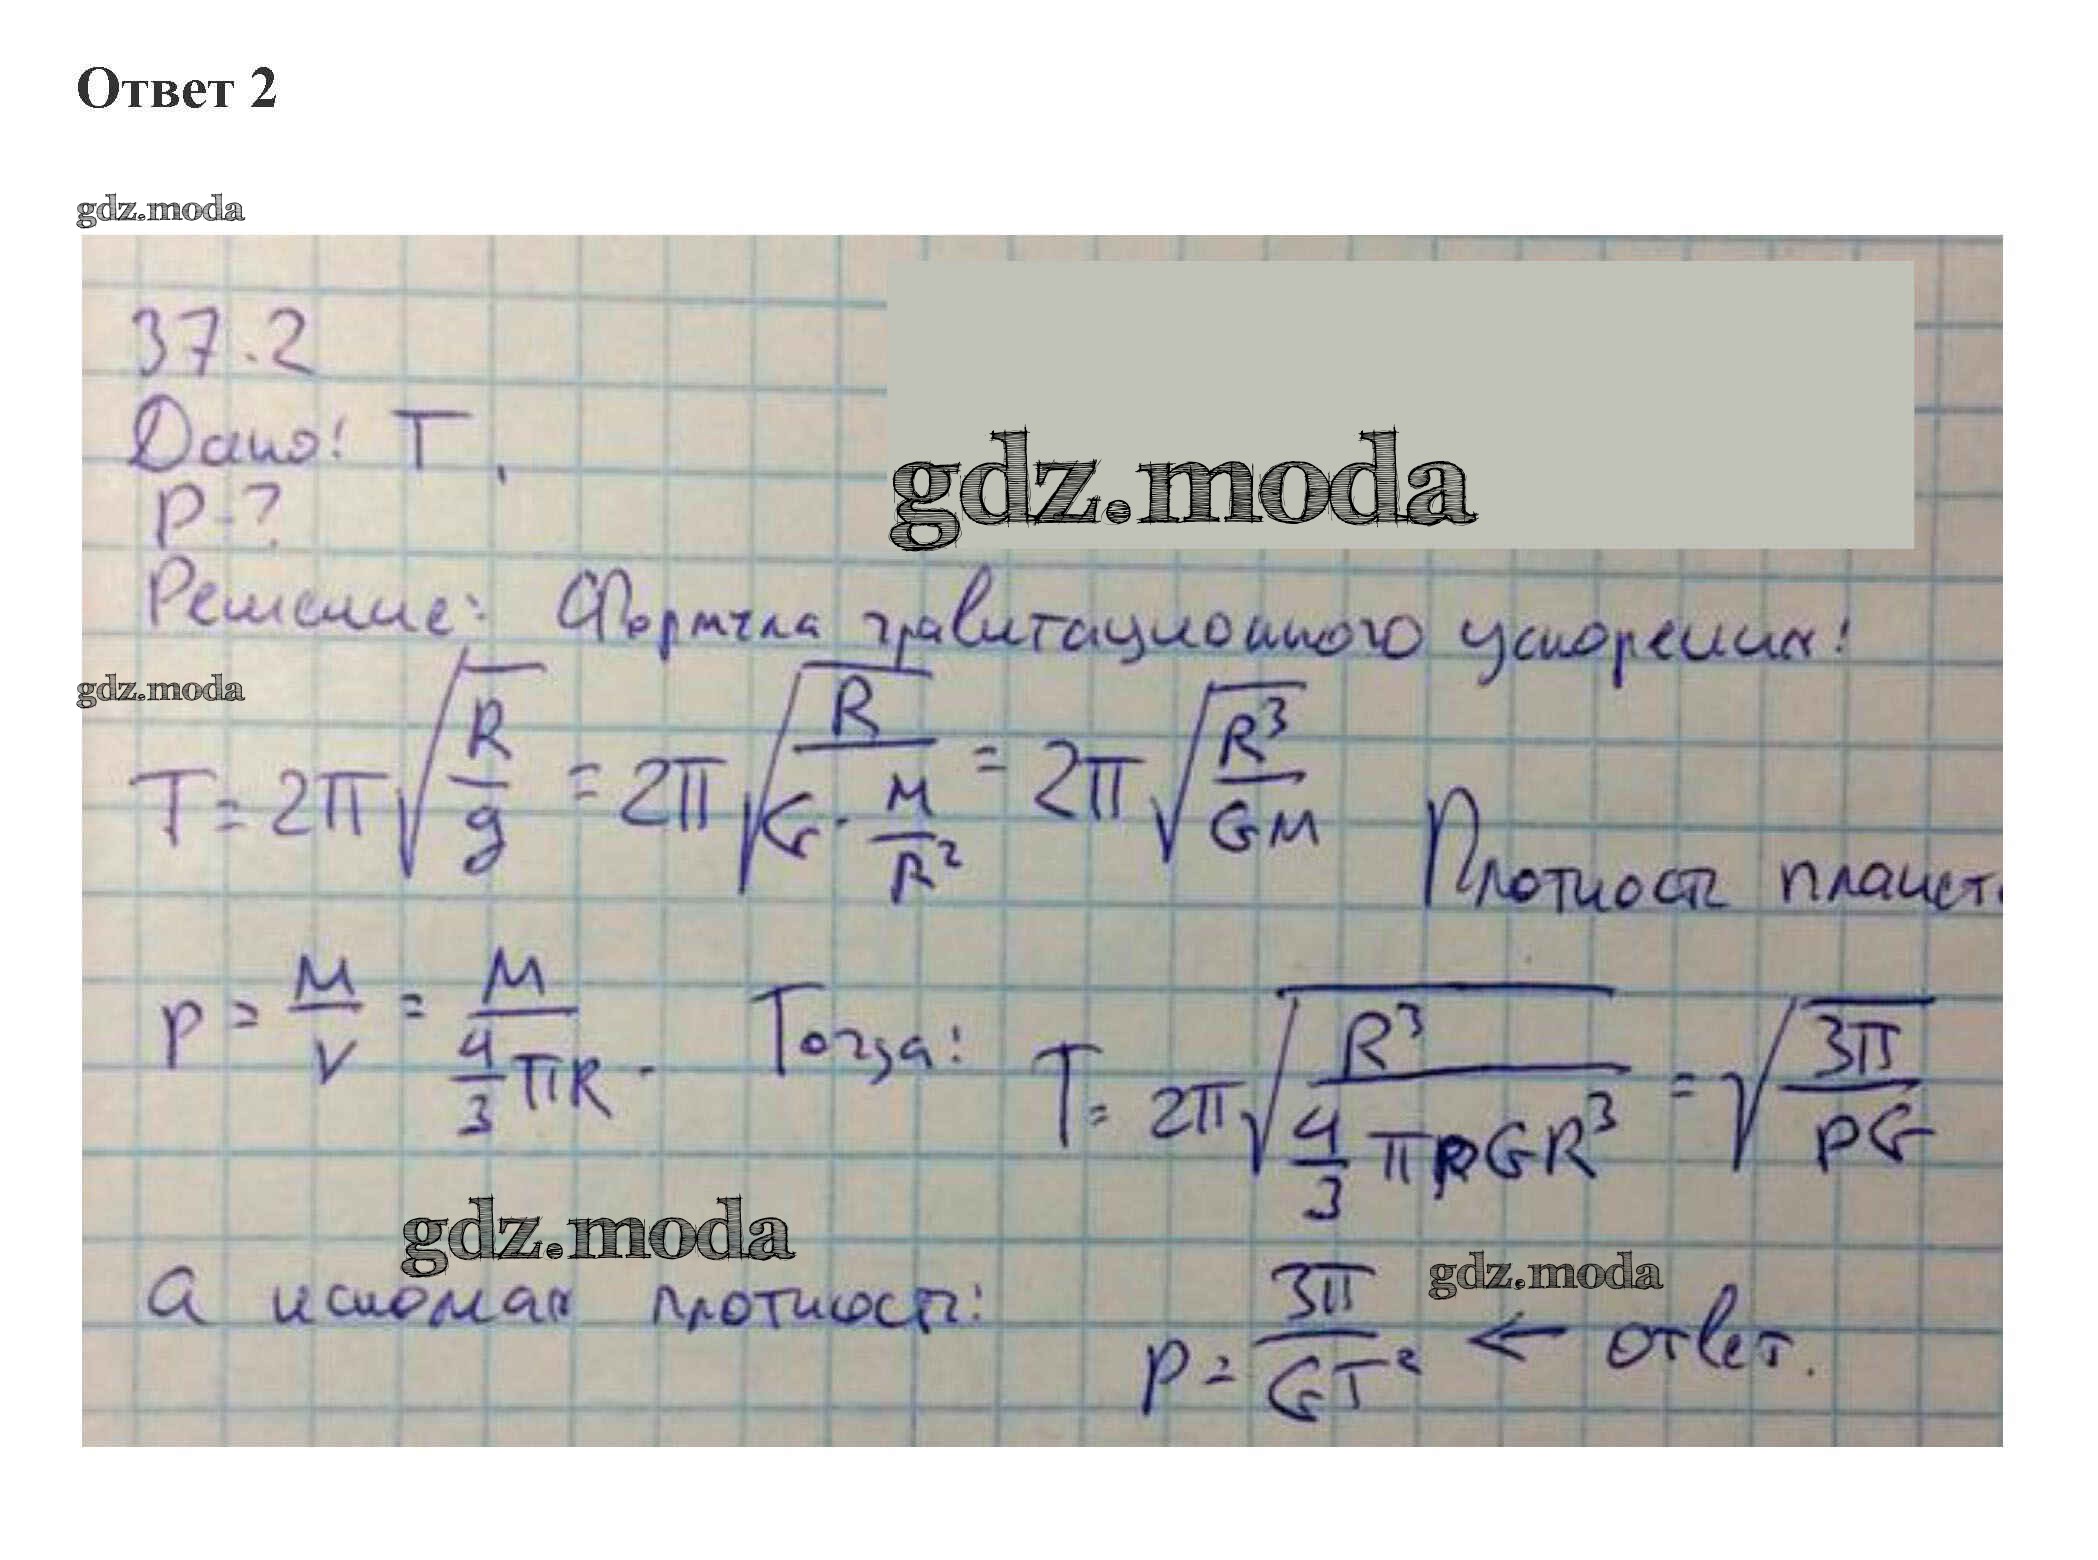 Ответ 2
gdz.moda
37.2
Дано: T,
gdz.moda
ρ-?
Решение: Формула гравитационного ускорения:
gdz.moda
T = 2π√(R/g) = 2π√(R/(G·M/R²)) = 2π√(R³/GM) Плотность планет
ρ = M/V = M/(4/3 πR). Тогда: T = 2π√(R³/(4/3 πρGR³)) = √(3π/ρG)
gdz.moda
gdz.moda
а искомая плотность: ρ = 3π/GT² ← ответ.